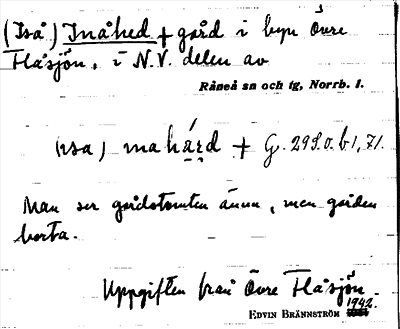 (Iså) Inåhed + gård i byn Övre
Flåsjön, i N.V. delen av
Råneå sn och tg, Norrb. l.
(ısa) mahárd + G. 295.0.b1,71.
Man ser gårdstomten ännu, men gården
borta.
Uppgiften från Övre Flåsjön.
1942.
EDVIN BRÄNNSTRÖM